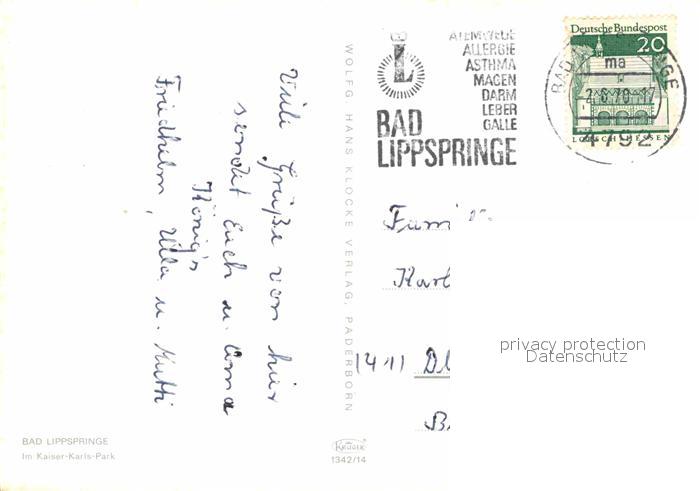 Viele Grüße von hier
sendet Euch u. Oma
König's
Friedhelm, Ulla u. Mutti
WOLFG. HANS KLOCKE VERLAG, PADERBORN
ATEMWEGE
ALLERGIE
ASTHMA
MAGEN
DARM
LEBER
GALLE
L
BAD
LIPPSPRINGE
Deutsche Bundespost
20
ma
2.6.70-17
4792
LORSCH/HESSEN
Fami
Karl
privacy protection
Datenschutz
BAD LIPPSPRINGE
Im Kaiser-Karls-Park
KRÜGER
1342/14